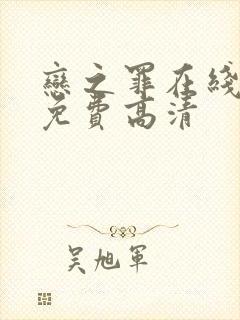 戀之罪在綫
免費高清
吴旭軍